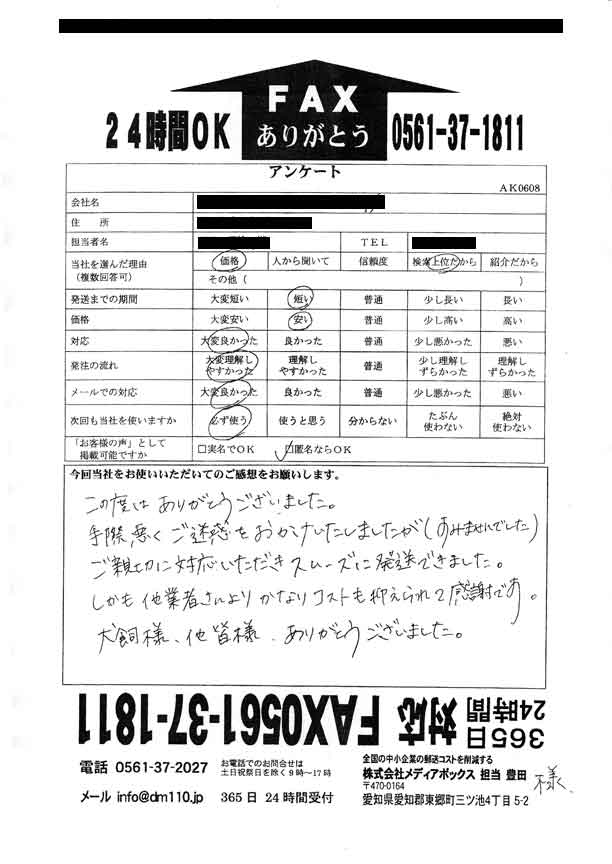 FAX
24時間OK ありがとう 0561-37-1811
アンケート
AK0608
会社名
住 所
担当者名 TEL
当社を選んだ理由(複数回答可) 価格 人から聞いて 信頼度 検索上位だから 紹介だから
その他( )
発送までの期間 大変短い 短い 普通 少し長い 長い
価格 大変安い 安い 普通 少し高い 高い
対応 大変良かった 良かった 普通 少し悪かった 悪い
発注の流れ 大変理解しやすかった 理解しやすかった 普通 少し理解しずらかった 理解しずらかった
メールでの対応 大変良かった 良かった 普通 少し悪かった 悪い
次回も当社を使いますか 必ず使う 使うと思う 分からない たぶん使わない 絶対使わない
「お客様の声」として掲載可能ですか □実名でOK □匿名ならOK
今回当社をお使いいただいてのご感想をお願いします。
この度は ありがとうございました。
手際悪く ご迷惑をおかけいたしましたが(すみませんでした)
ご親切に対応いただき スムーズに発送できました。
しかも他業者さんより かなりコストも抑えられて感謝です。
犬飼様、他皆様、ありがとうございました。
365日 24時間 対応 FAX0561-37-1811
電話 0561-37-2027 お電話でのお問合せは
土日祝祭日を除く9時~17時
メール info@dm110.jp 365日 24時間受付
全国の中小企業の郵送コストを削減する
株式会社メディアボックス 担当 豊田 様
〒470-0164
愛知県愛知郡東郷町三ツ池4丁目5-2